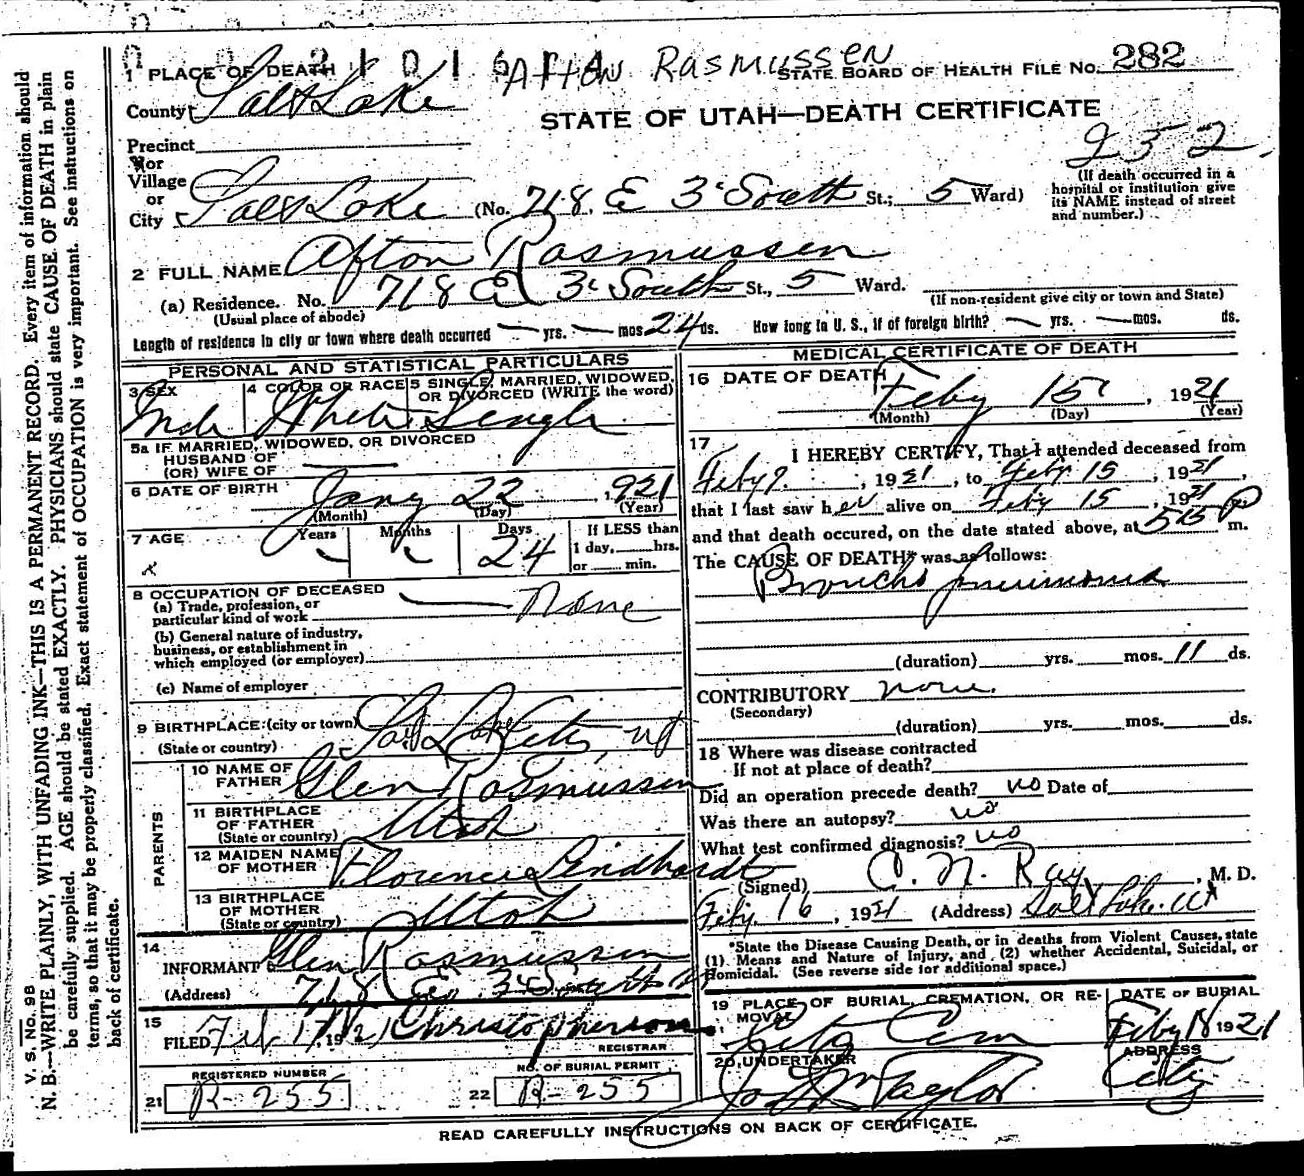 AFTON RASMUSSEN
1 PLACE OF DEATH
STATE BOARD OF HEALTH FILE NO. 282
County Salt Lake
STATE OF UTAH—DEATH CERTIFICATE
252
Precinct
or
Village
or
City Salt Lake (No. 718 E 3d South St.; 5 Ward)
(If death occurred in a hospital or institution give its NAME instead of street and number.)
2 FULL NAME Afton Rasmussen
(a) Residence. No. 718 E 3d South St., 5 Ward.
(Usual place of abode)
(If non-resident give city or town and State)
Length of residence in city or town where death occurred — yrs. — mos. 24 ds. How long in U. S., if of foreign birth? — yrs. — mos. ds.
PERSONAL AND STATISTICAL PARTICULARS
3 SEX
4 COLOR OR RACE
5 SINGLE, MARRIED, WIDOWED, OR DIVORCED (WRITE the word)
Male White Single
5a IF MARRIED, WIDOWED, OR DIVORCED
HUSBAND OF
(OR) WIFE OF
6 DATE OF BIRTH Jany 22 1921
(Month) (Day) (Year)
7 AGE
Years Months Days
24
If LESS than
1 day, hrs.
or min.
8 OCCUPATION OF DECEASED
(a) Trade, profession, or
particular kind of work None
(b) General nature of industry,
business, or establishment in
which employed (or employer)
(c) Name of employer
9 BIRTHPLACE (city or town) Salt Lake City, Ut
(State or country)
PARENTS
10 NAME OF FATHER Glen Rasmussen
11 BIRTHPLACE OF FATHER Utah
(State or country)
12 MAIDEN NAME OF MOTHER Florence Lindhardt
13 BIRTHPLACE OF MOTHER Utah
(State or country)
14
INFORMANT Glen Rasmussen
(Address) 718 E. 3d South
15
FILED Feb 17 1921 Christopherson
REGISTRAR
REGISTERED NUMBER
21 R-255
NO. OF BURIAL PERMIT
22 R-255
MEDICAL CERTIFICATE OF DEATH
16 DATE OF DEATH Feby 15, 1921
(Month) (Day) (Year)
17
I HEREBY CERTIFY, That I attended deceased from
Feby , 1921, to Feby 15, 1921,
that I last saw her alive on Feby 15, 1921
and that death occured, on the date stated above, at 515 P m.
The CAUSE OF DEATH* was as follows:
Broncho pneumonia
(duration) yrs. mos. 11 ds.
CONTRIBUTORY none.
(Secondary)
(duration) yrs. mos. ds.
18 Where was disease contracted
If not at place of death?
Did an operation precede death? no Date of
Was there an autopsy? no
What test confirmed diagnosis? no
(Signed) C. N. Ray, M. D.
Feby. 16, 1921 (Address) Salt Lake
*State the Disease Causing Death, or in deaths from Violent Causes, state
(1) Means and Nature of Injury, and (2) whether Accidental, Suicidal, or
Homicidal. (See reverse side for additional space.)
19 PLACE OF BURIAL, CREMATION, OR REMOVAL
City Cem
DATE OF BURIAL
Feby 1921
20 UNDERTAKER
Taylor
ADDRESS
City
READ CAREFULLY INSTRUCTIONS ON BACK OF CERTIFICATE.
V. S. NO. 98
N. B.—WRITE PLAINLY, WITH UNFADING INK—THIS IS A PERMANENT RECORD. Every item of information should
be carefully supplied. AGE should be stated EXACTLY. PHYSICIANS should state CAUSE OF DEATH in plain
terms, so that it may be properly classified. Exact statement of OCCUPATION is very important. See instructions on
back of certificate.